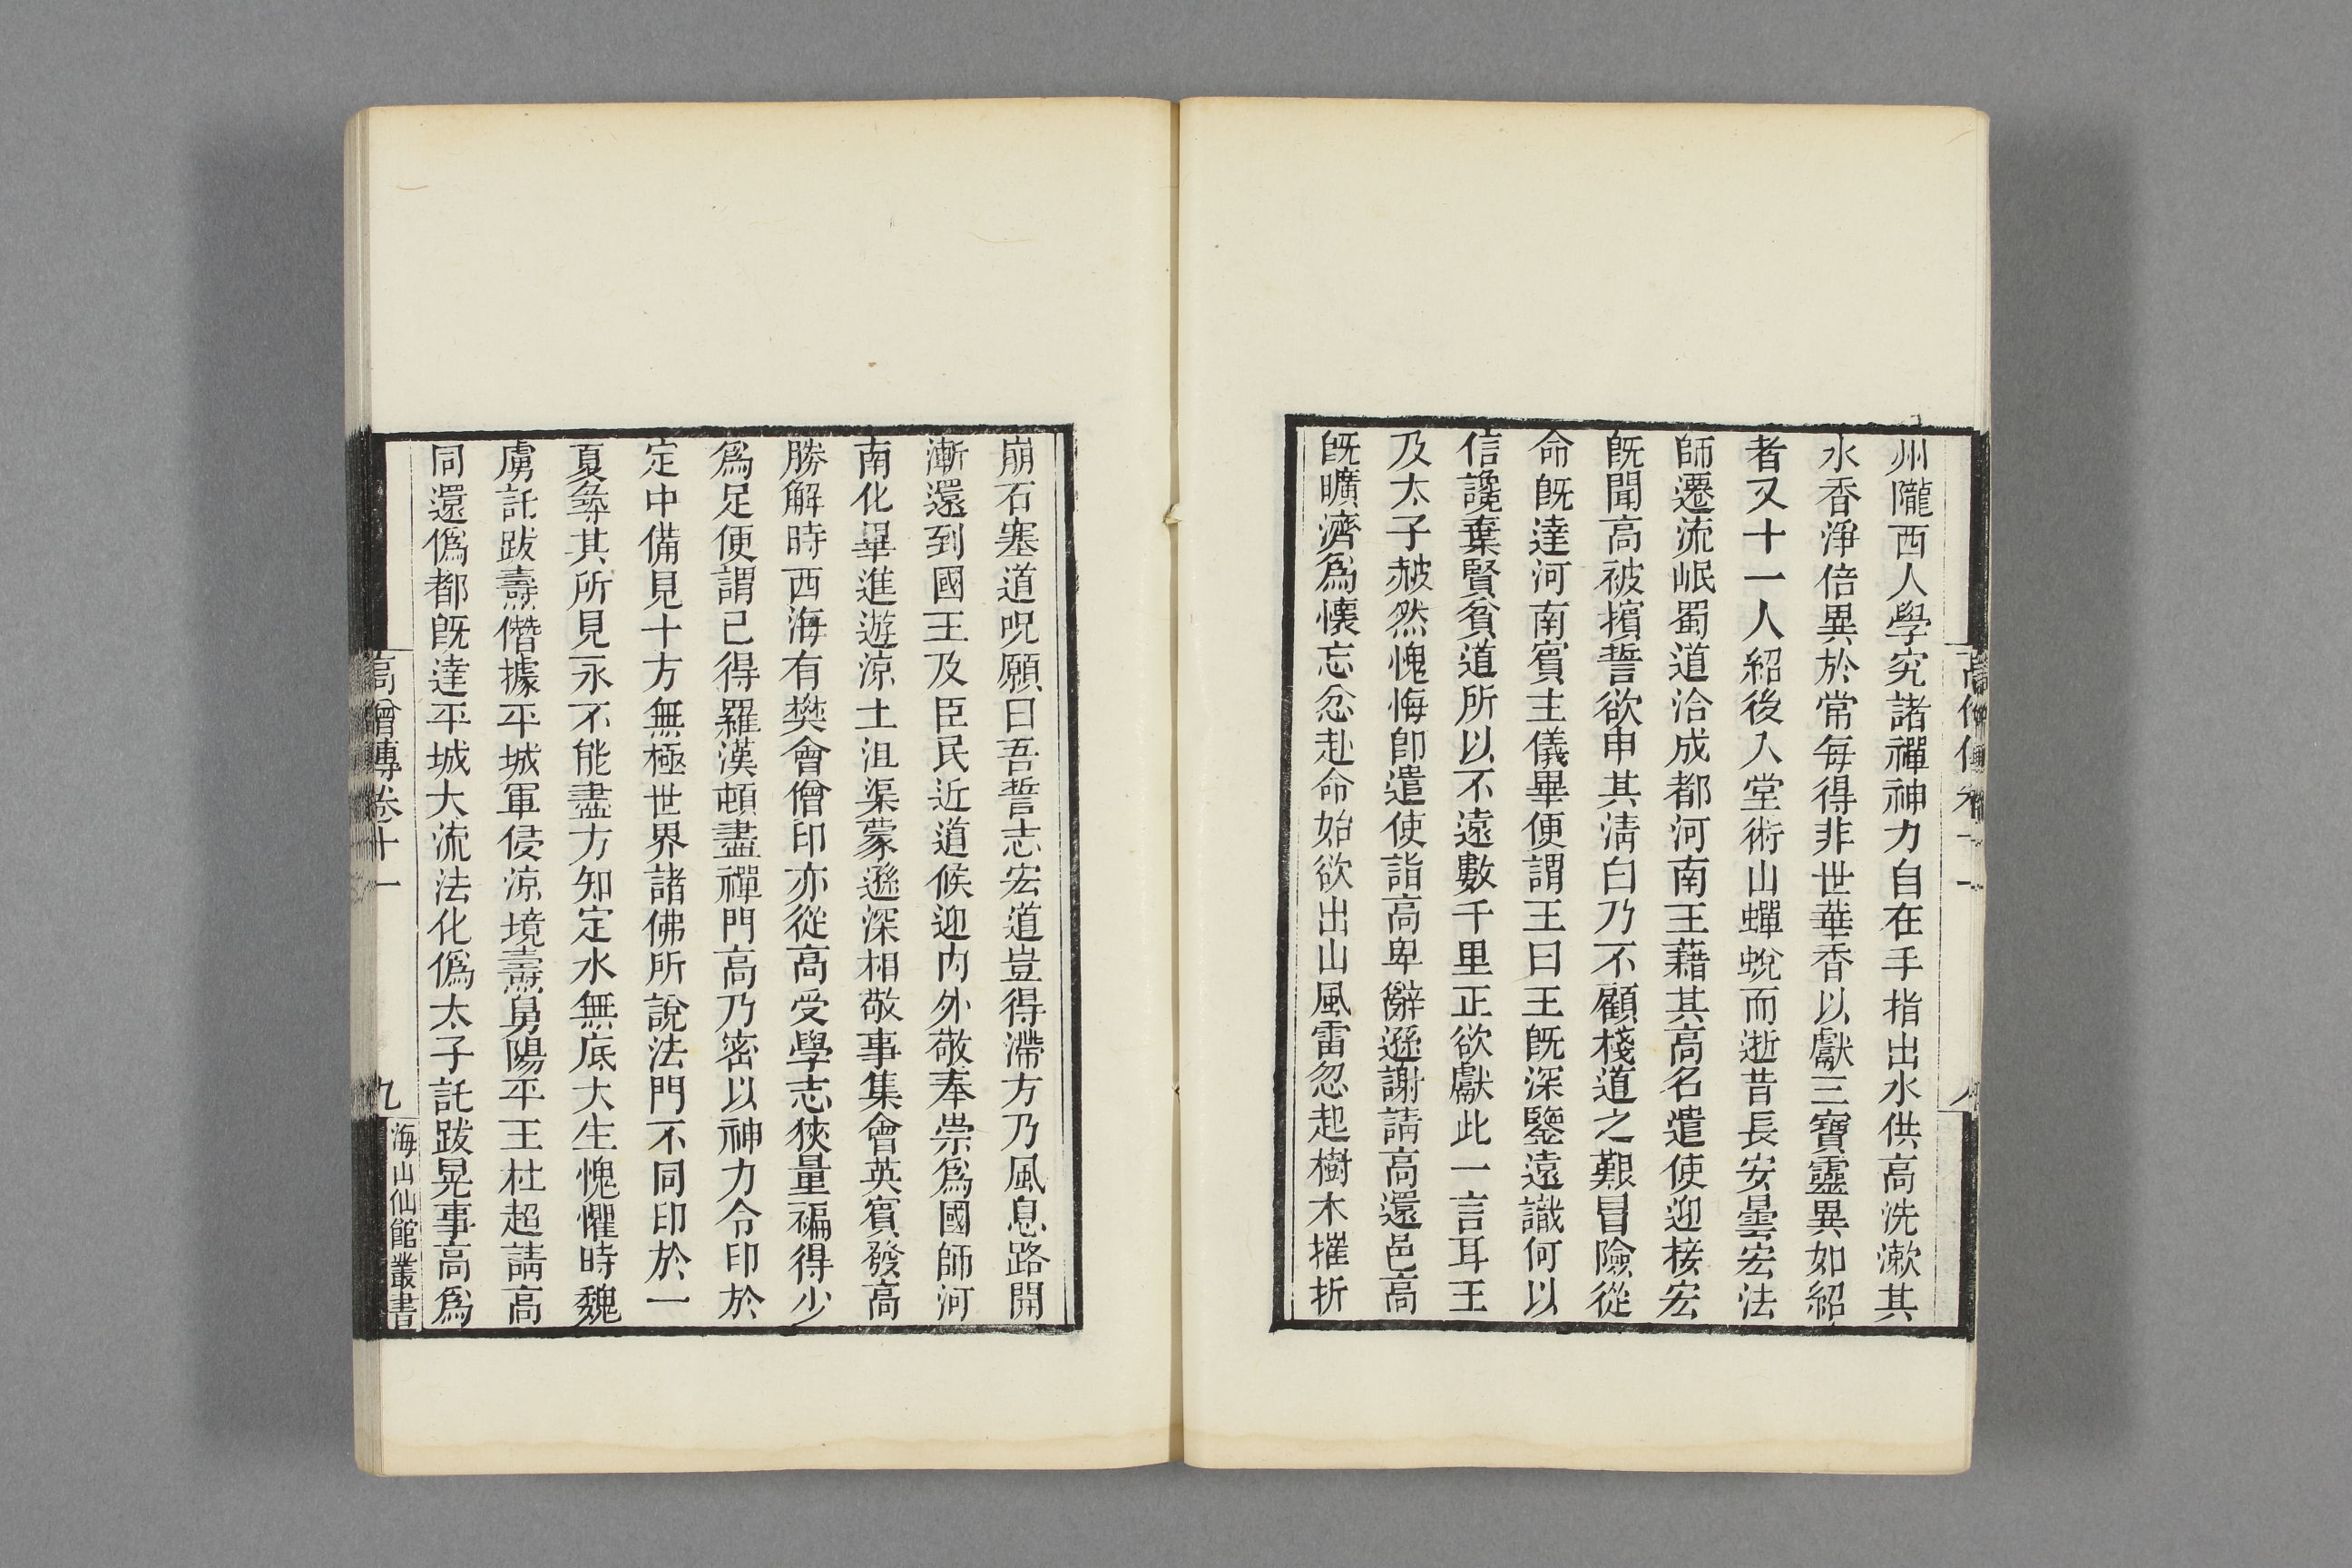 州隴西人學究諸禪神力自在手指出水供高洗漱其
水香淨倍異於常每得非世華香以獻三寶靈異如紹
者又十一人紹後入堂術山蟬蛻而逝昔長安曇宏法
師遷流岷蜀道洽成都河南王藉其高名遣使迎接宏
旣聞高被擯誓欲申其淸白乃不顧棧道之艱冒險從
命旣達河南賓主儀畢便謂王曰王旣深鑒遠識何以
信讒棄賢貧道所以不遠數千里正欲獻此一言耳王
及太子赧然愧悔卽遣使詣高卑辭遜謝請高還邑高
旣曠濟爲懷忘忿赴命始欲出山風雷忽起樹木摧折
崩石塞道呪願曰吾誓志宏道豈得滯方乃風息路開
漸還到國王及臣民近道候迎內外敬奉崇爲國師河
南化畢進遊涼土沮渠蒙遜深相敬事集會英賓發高
勝解時西海有樊會僧印亦從高受學志狹量褊得少
爲足便謂已得羅漢頓盡禪門高乃密以神力令印於
定中備見十方無極世界諸佛所說法門不同印於一
夏尋其所見永不能盡方知定水無底大生愧懼時魏
虜託跋燾僭據平城軍侵涼境燾舅陽平王杜超請高
同還僞都旣達平城大流法化僞太子託跋晃事高爲
高僧傳卷十一
九
海山仙館叢書